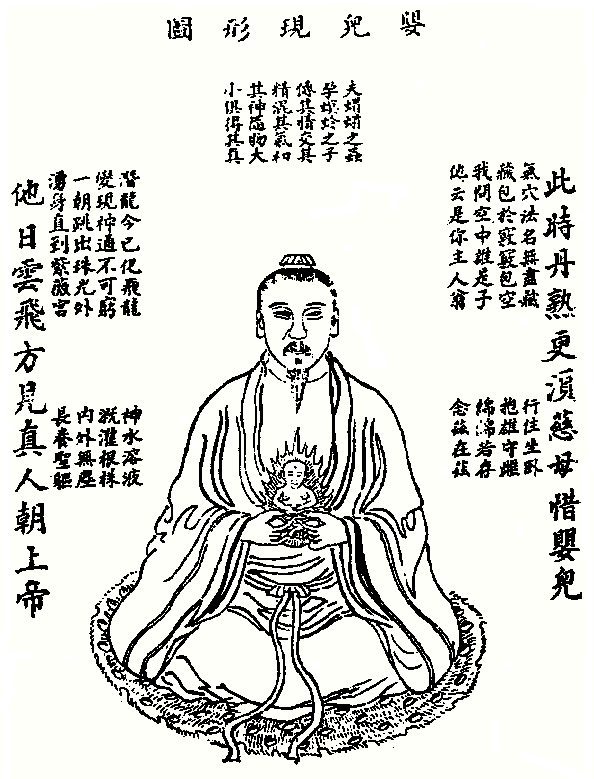 嬰兒現形圖
夫之蟲
孕螟蛉之子
傳其情交其
精混其氣和
其神隨物大
小俱得其真
此時丹熟更須慈母惜嬰兒
氣穴法名無盡藏
藏包於竅竅包空
我問空中誰是子
他云是你主人翁
行住坐臥
抱雄守雌
綿綿若存
念茲在茲
潛龍今已化飛龍
變現神通不可窮
一朝跳出珠光外
湧身直到紫微宮
神水溶液
溉灌根株
內外無塵
長養聖軀
他日雲飛方見真人朝上帝